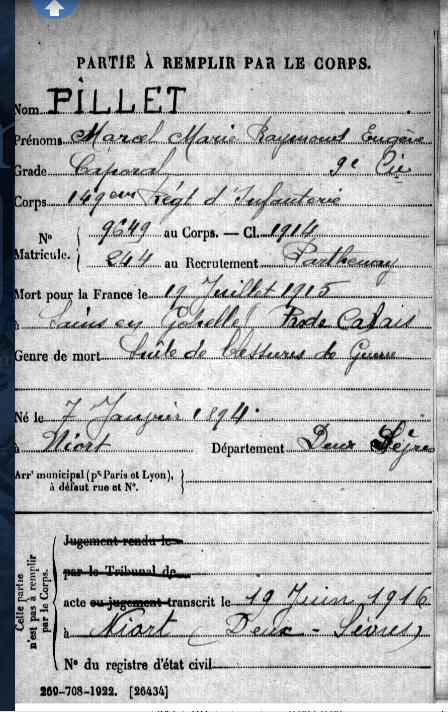 PARTIE À REMPLIR PAR LE CORPS.
Nom PILLET
Prénoms Marcel Marie Raymond Eugène
Grade Caporal 9e Cie
Corps 149eme Régt d'Infanterie
No Matricule. 9649 au Corps. — Cl. 1914
844 au Recrutement Parthenay
Mort pour la France le 19 Juillet 1915
à Sains en Gohelle Pas de Calais
Genre de mort Suite de blessures de Guerre
Né le 7 Janvier 1894
à Niort Département Deux Sèvres
Arrt municipal (pr Paris et Lyon),
à défaut rue et No.
Cette partie n'est pas à remplir par le Corps.
Jugement rendu le
par le Tribunal de
acte ou jugement transcrit le 19 Juin 1916
à Niort (Deux-Sèvres)
No du registre d'état civil
269-708-1922. [26434]